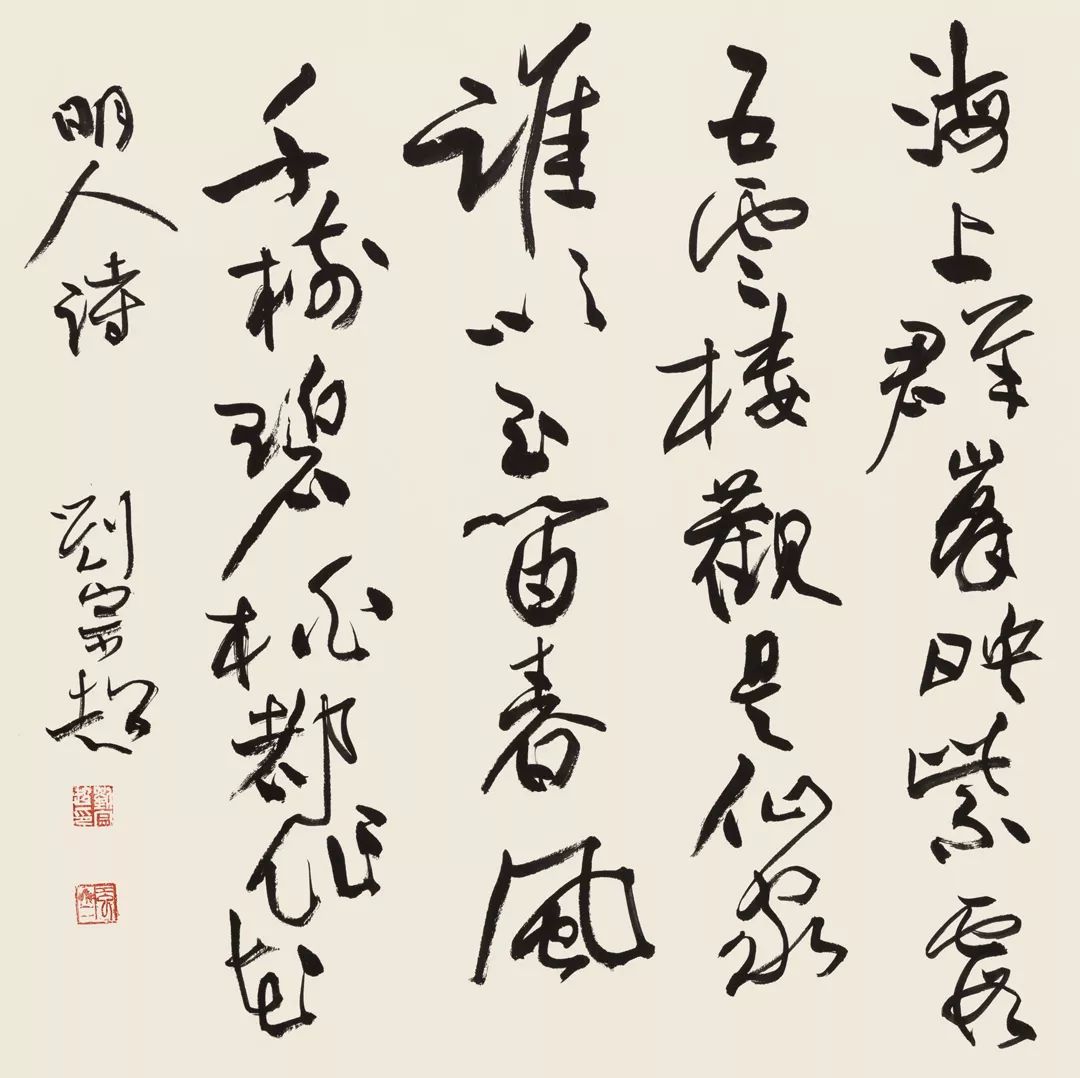 海上群峯映紫霞
五雲樓觀是仙家
誰以玉笛春風
千樹碧桃都作花
明人詩 劉宗超